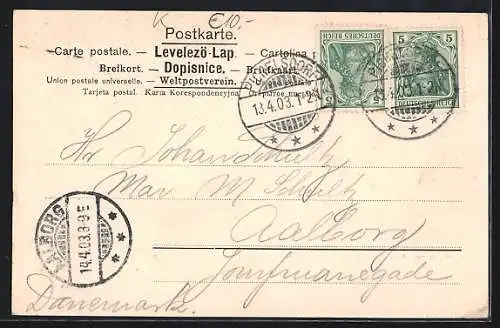 K €10.-
Postkarte.
Carte postale. — Levelezö-Lap. — Cartolina
Brefkort. — Dopisnice. — Brevkort.
Union postale universelle. — Weltpostverein. —
Tarjeta postal. Karta Korespondencyjna.
DEUTSCHES REICH
5 5
DEUTSCHES REICH
13.4.03.1-2N
Hr Johan Schultz
Mar. M. Schultz
Aalborg
Jomfruanegade
Danemark.
AALBORG
14.4.03.8-9E